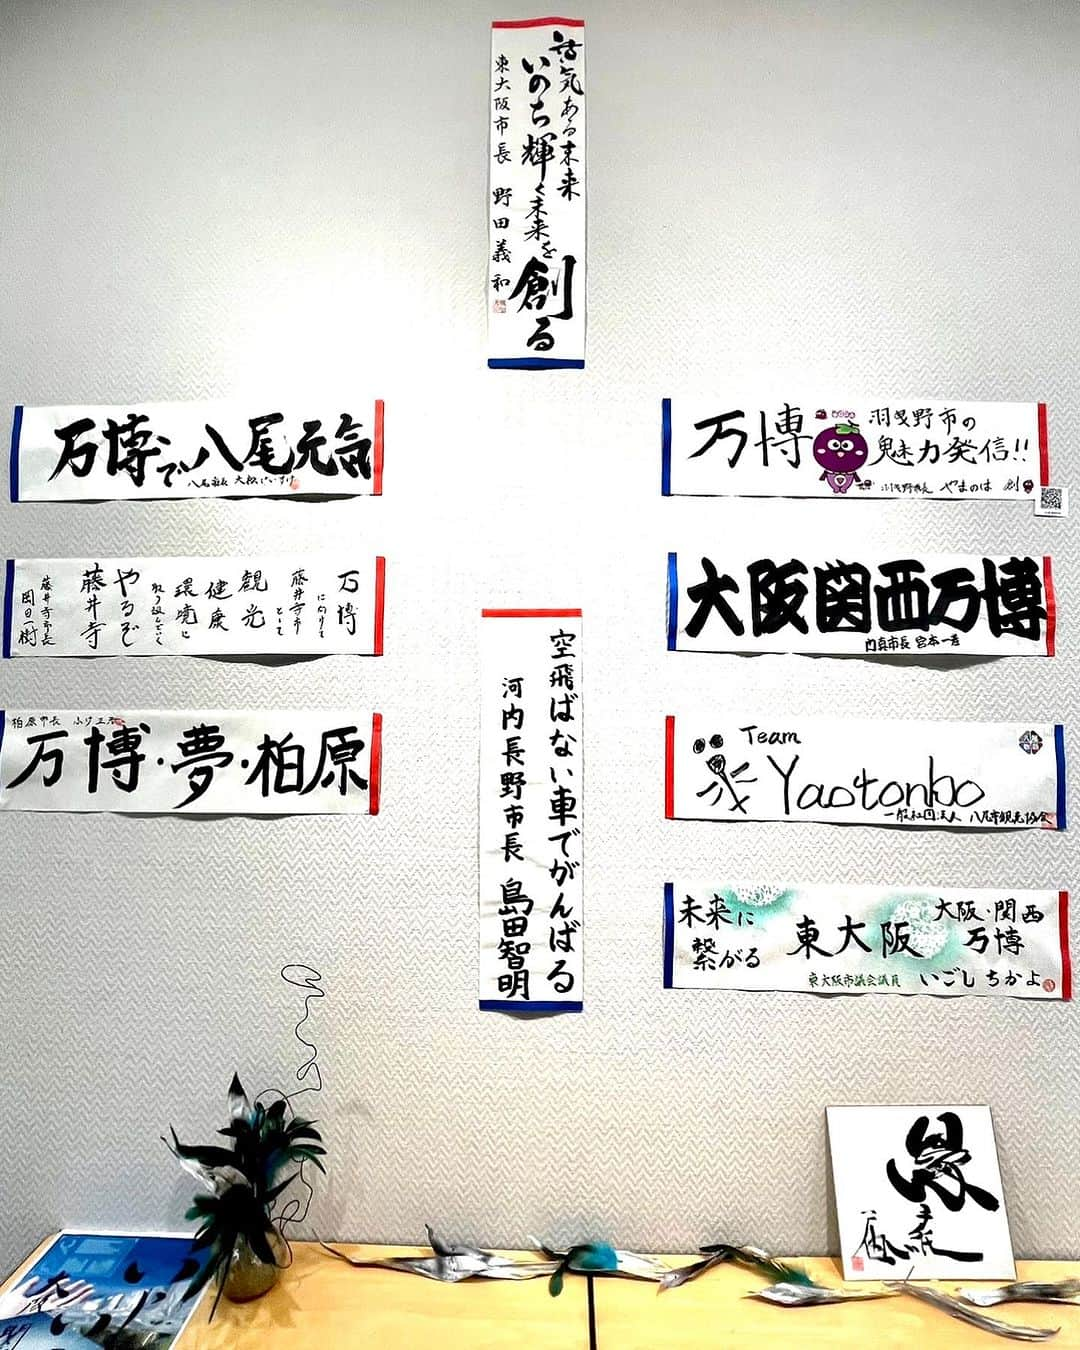 活気ある未来
いのち輝く未来を創る
東大阪市長 野田義和
万博で八尾元気
八尾市長 大松けいすけ
万博
羽曳野市の
魅力発信!!
羽曳野市長 やまのは 創
万博
に向けて
藤井寺市
として
観光
健康
環境に
取り組んでいく
やるぞ
藤井寺
藤井寺市長
岡田一樹
大阪関西万博
門真市長 宮本一孝
柏原市長
万博・夢・柏原
Team
Yaotonbo
一般社団法人 八尾市観光協会
空飛ばない車でがんばる
河内長野市長 島田智明
未来に
繋がる
東大阪
大阪・関西
万博
東大阪市議会議員 いごし ちかよ
縁